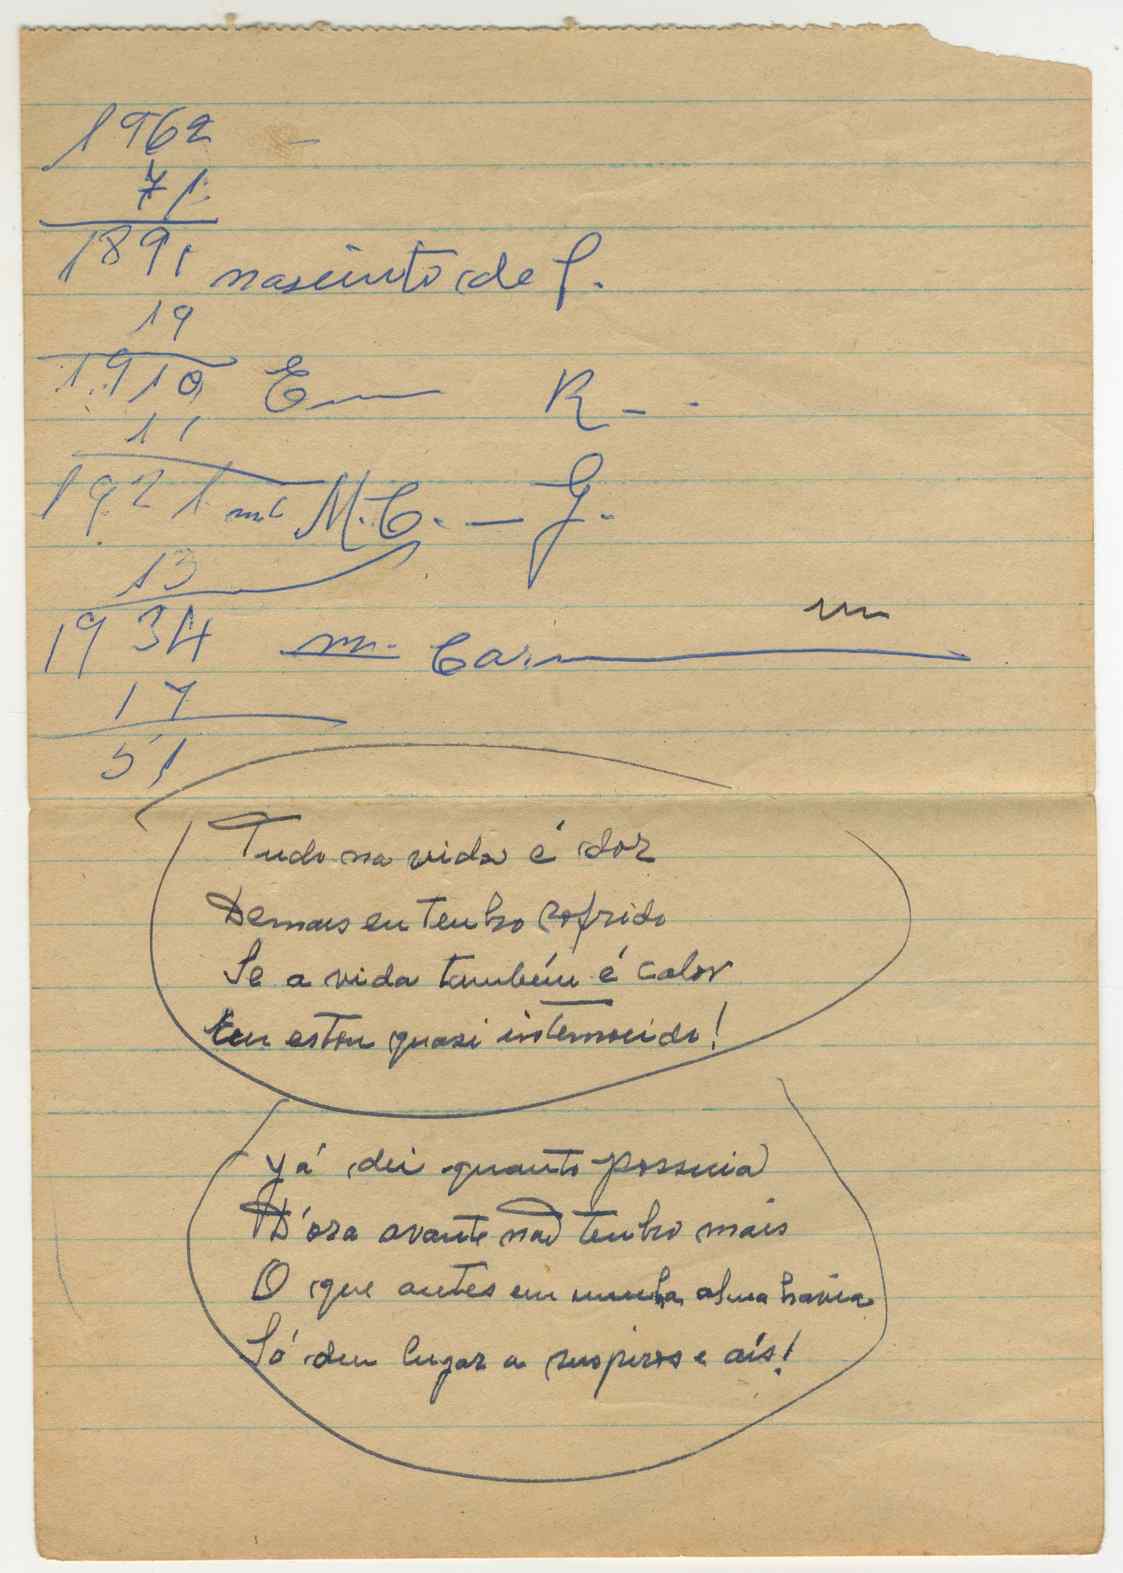 1962 -
71
1891 nascimto de J.
19
1910 E R - -
11
1921 M.C. - G.
13
1934 m. Ca
17
51
Tudo na vida é dor
Demais eu tenho sofrido
Se a vida também é calor
eu estou quasi internecido!
Yá dei quanto possuia
D'ora avante não tenho mais
O que antes em minha alma havia
Só deu lugar a suspiros e ais!